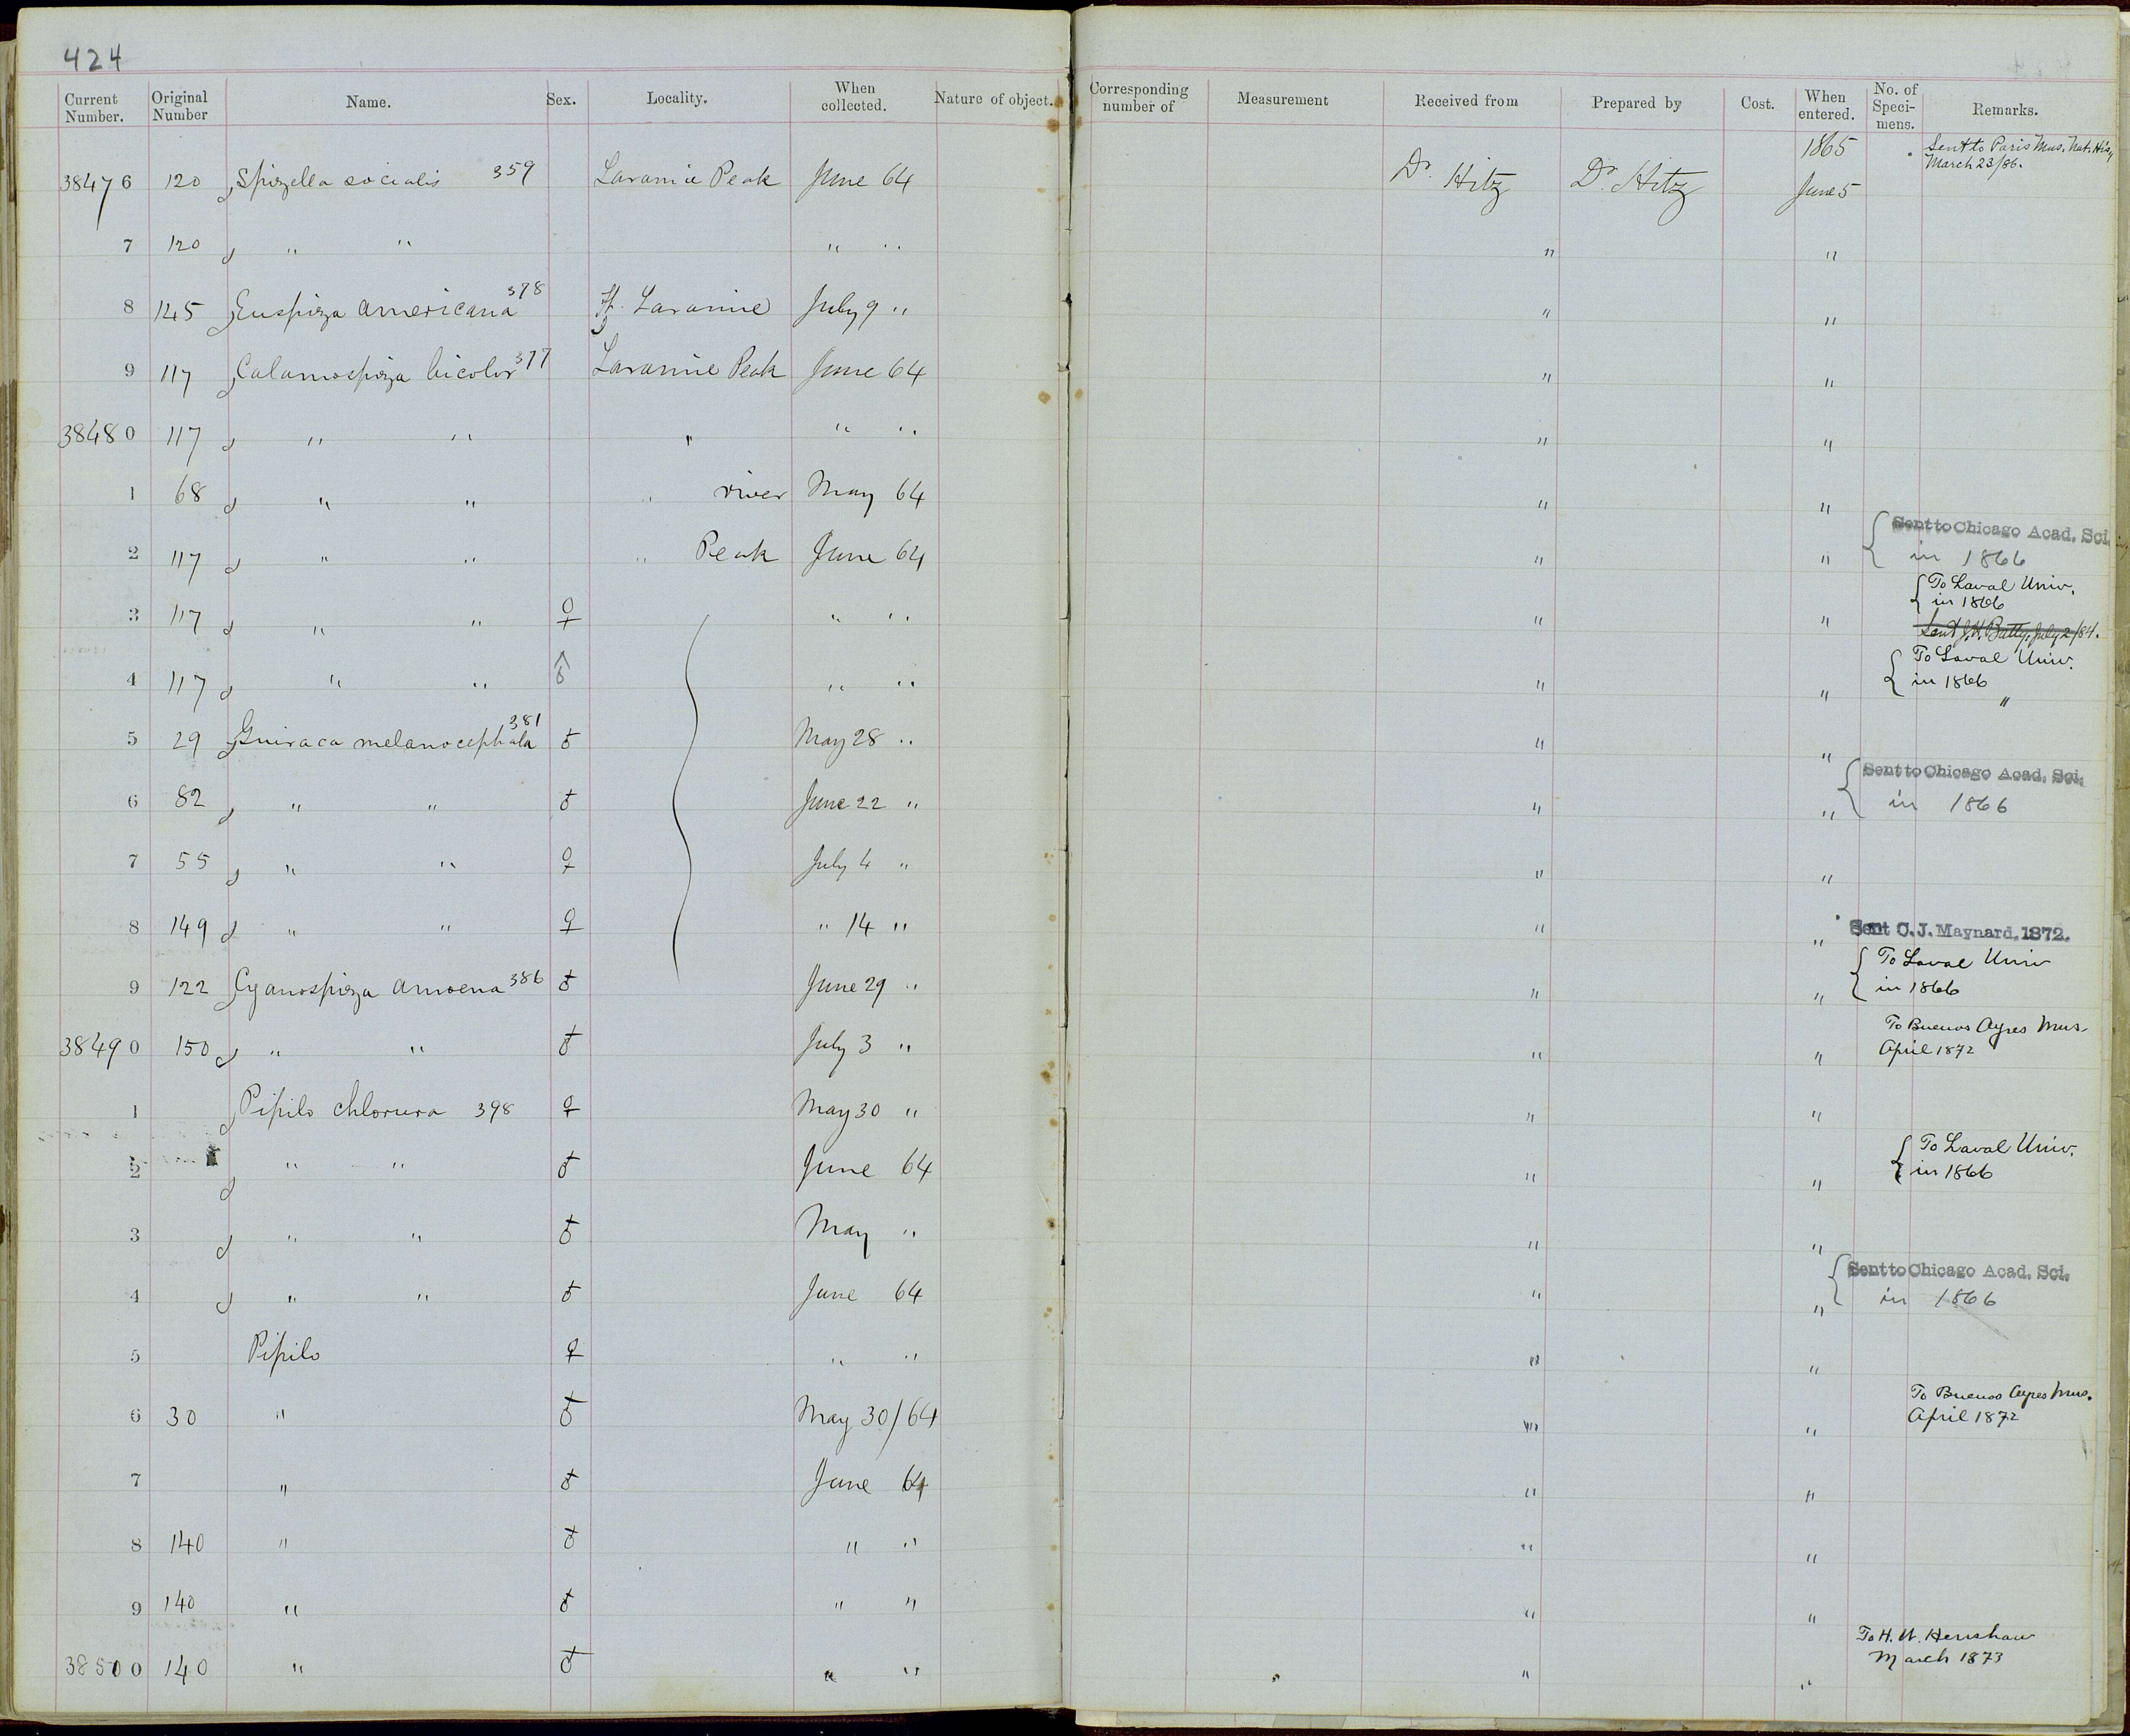 424
Current Number. Original Number Name. Sex. Locality. When collected. Nature of object. Corresponding number of Measurement Received from Prepared by Cost. When entered. No. of Specimens. Remarks.
38476 120 Spizella socialis 359 Laramie Peak June 64 Dr. Hitz Dr. Hitz 1865 June 5 Sent to Paris Mus. Nat. His, March 23/86.
7 120 " " " " " "
8 125 Euspiza americana 378 Ft. Laramie July 9 " " "
9 117 Calamospiza bicolor 377 Laramie Peak June 64 " "
38480 117 " " " " " " "
1 68 " " " river May 64 " "
2 117 " " " Peak June 64 " " Sent to Chicago Acad. Sci. in 1866
3 117 " " ♀ " " " " To Laval Univ. in 1866
Sent J.H. Batty, July 2/84.
4 117 " " ♂ " " " " To Laval Univ. in 1866
"
5 29 Guiraca melanocephala 381 ♂ May 28 " " "
6 82 " " ♂ June 22 " " " Sent to Chicago Acad. Sci. in 1866
7 55 " " ♀ July 4 " " "
8 149 " " ♀ " 14 " " " Sent C. J. Maynard, 1872.
9 122 Cyanospiza amoena 386 ♂ June 29 " " " To Laval Univ in 1866
38490 150 " " ♂ July 3 " " " To Buenos Ayres Mus. April 1872
1 Pipilo chlorura 398 ♀ May 30 " " "
2 " " ♂ June 64 " " To Laval Univ. in 1866
3 " " ♂ May " " "
4 " " ♂ June 64 " " Sent to Chicago Acad. Sci. in 1866
5 Pipilo ♀ " " " "
6 30 " ♂ May 30/64 " " To Buenos Ayres Mus. April 1872
7 " ♂ June 64 " "
8 140 " ♂ " " " "
9 140 " ♂ " " " "
38500 140 " ♂ " " " " To H. W. Henshaw March 1873